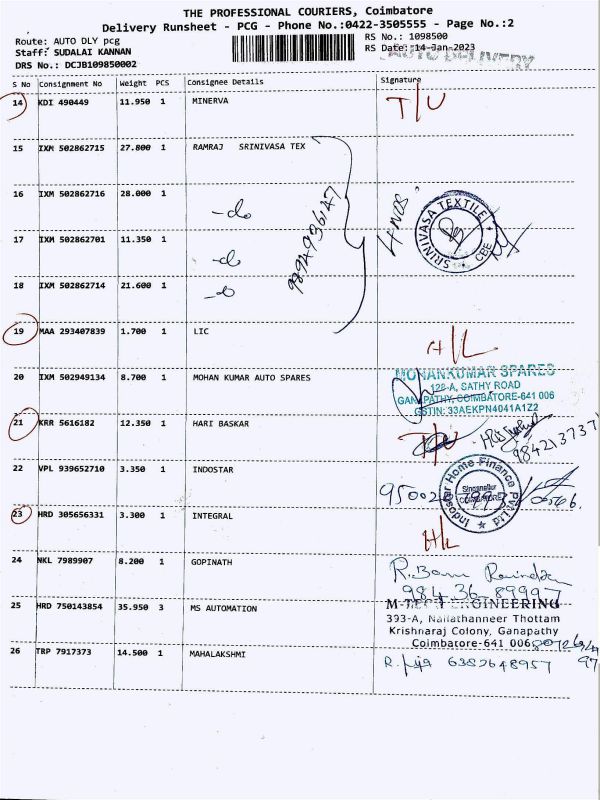 THE PROFESSIONAL COURIERS, Coimbatore
Delivery Runsheet - PCG - Phone No.:0422-3505555 - Page No.:2
Route: AUTO DLY pcg
RS No.: 1098500
Staff: SUDALAI KANNAN
RS Date: 14-Jan-2023
DRS No.: DCJB109850002
AUTO DELIVERY
S No Consignment No Weight PCS Consignee Details Signature
14 KDI 490449 11.950 1 MINERVA T/U
15 IXM 502862715 27.800 1 RAMRAJ SRINIVASA TEX
16 IXM 502862716 28.000 1 -do
9894936147
4 NOS
SRINIVASA TEXTILE CBE
17 IXM 502862701 11.350 1 -do
18 IXM 502862714 21.600 1
19 MAA 293407839 1.700 1 LIC H/L
20 IXM 502949134 8.700 1 MOHAN KUMAR AUTO SPARES
MOHANKUMAR SPARES
128-A, SATHY ROAD
GANAPATHY, COIMBATORE-641 006
GSTIN: 33AEKPN4041A1Z2
21 KRR 5616182 12.350 1 HARI BASKAR T/U
984213737
22 VPL 939652710 3.350 1 INDOSTAR
Indostar Home Finance Pvt Ltd
Singanallur
COIMBATORE
23 HRD 305656331 3.300 1 INTEGRAL H/L
24 NKL 7989907 8.200 1 GOPINATH
984 36 89997
25 HRD 750143854 35.950 3 MS AUTOMATION
M-TECH ENGINEERING
393-A, Nallathanneer Thottam
Krishnaraj Colony, Ganapathy
Coimbatore-641 006
26 TRP 7917373 14.500 1 MAHALAKSHMI 6382648957